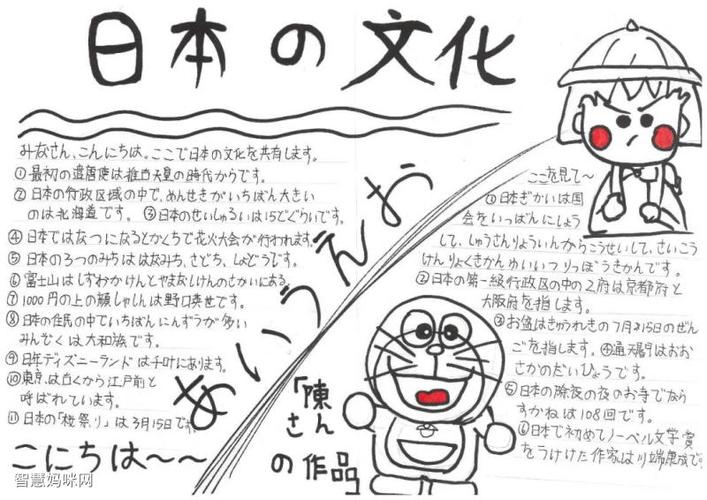 日本の文化
みなさん、こんにちは。ここで日本の文化を共有します。
①最初の遣唐使は推古天皇の時代からです。
②日本の行政区域の中で、めんせきがいちばん大きい
のは北海道です。③日本のせいしゅるいは15どぐらいです。
④日本ではなつになるとかくちで花火大会が行われます。
⑤日本の3つのみちははなみち、さどう、しょどうです。
⑥富士山はしずおかけんとやまなしけんのさかいにある。
⑦1000円の上の顔しゃしんは野口英世です。
⑧日本の住民の中でいちばんにんずうが多い
みんぞくは大和族です。
⑨日本ディズニーランドは千叶にあります。
⑩東京は古くから江戸前と
呼ばれています。
⑪日本の「桜祭り」は3月15日です
こにちは〜〜
あいうえお
「陳さん
の作品
ここを見て〜
①日本ぎかいは国
会をいっぱんにしょう
して、しゅうさんりょういんからこうせいして、さいこう
けんりょくきかんゆいいつりっぽうきかんです。
②日本の第一級行政区の中の2府は京都府と
大阪府を指します。
③お盆はきゅうれきの7月15日のぜん
ごを指します。④通天閣はおお
さかのだいひょうです。
⑤日本の除夜の夜のお寺でなら
すかねは108回です。
⑥日本で初めてノーベル文学賞
をうけた作家は川端康成で
智慧妈咪网